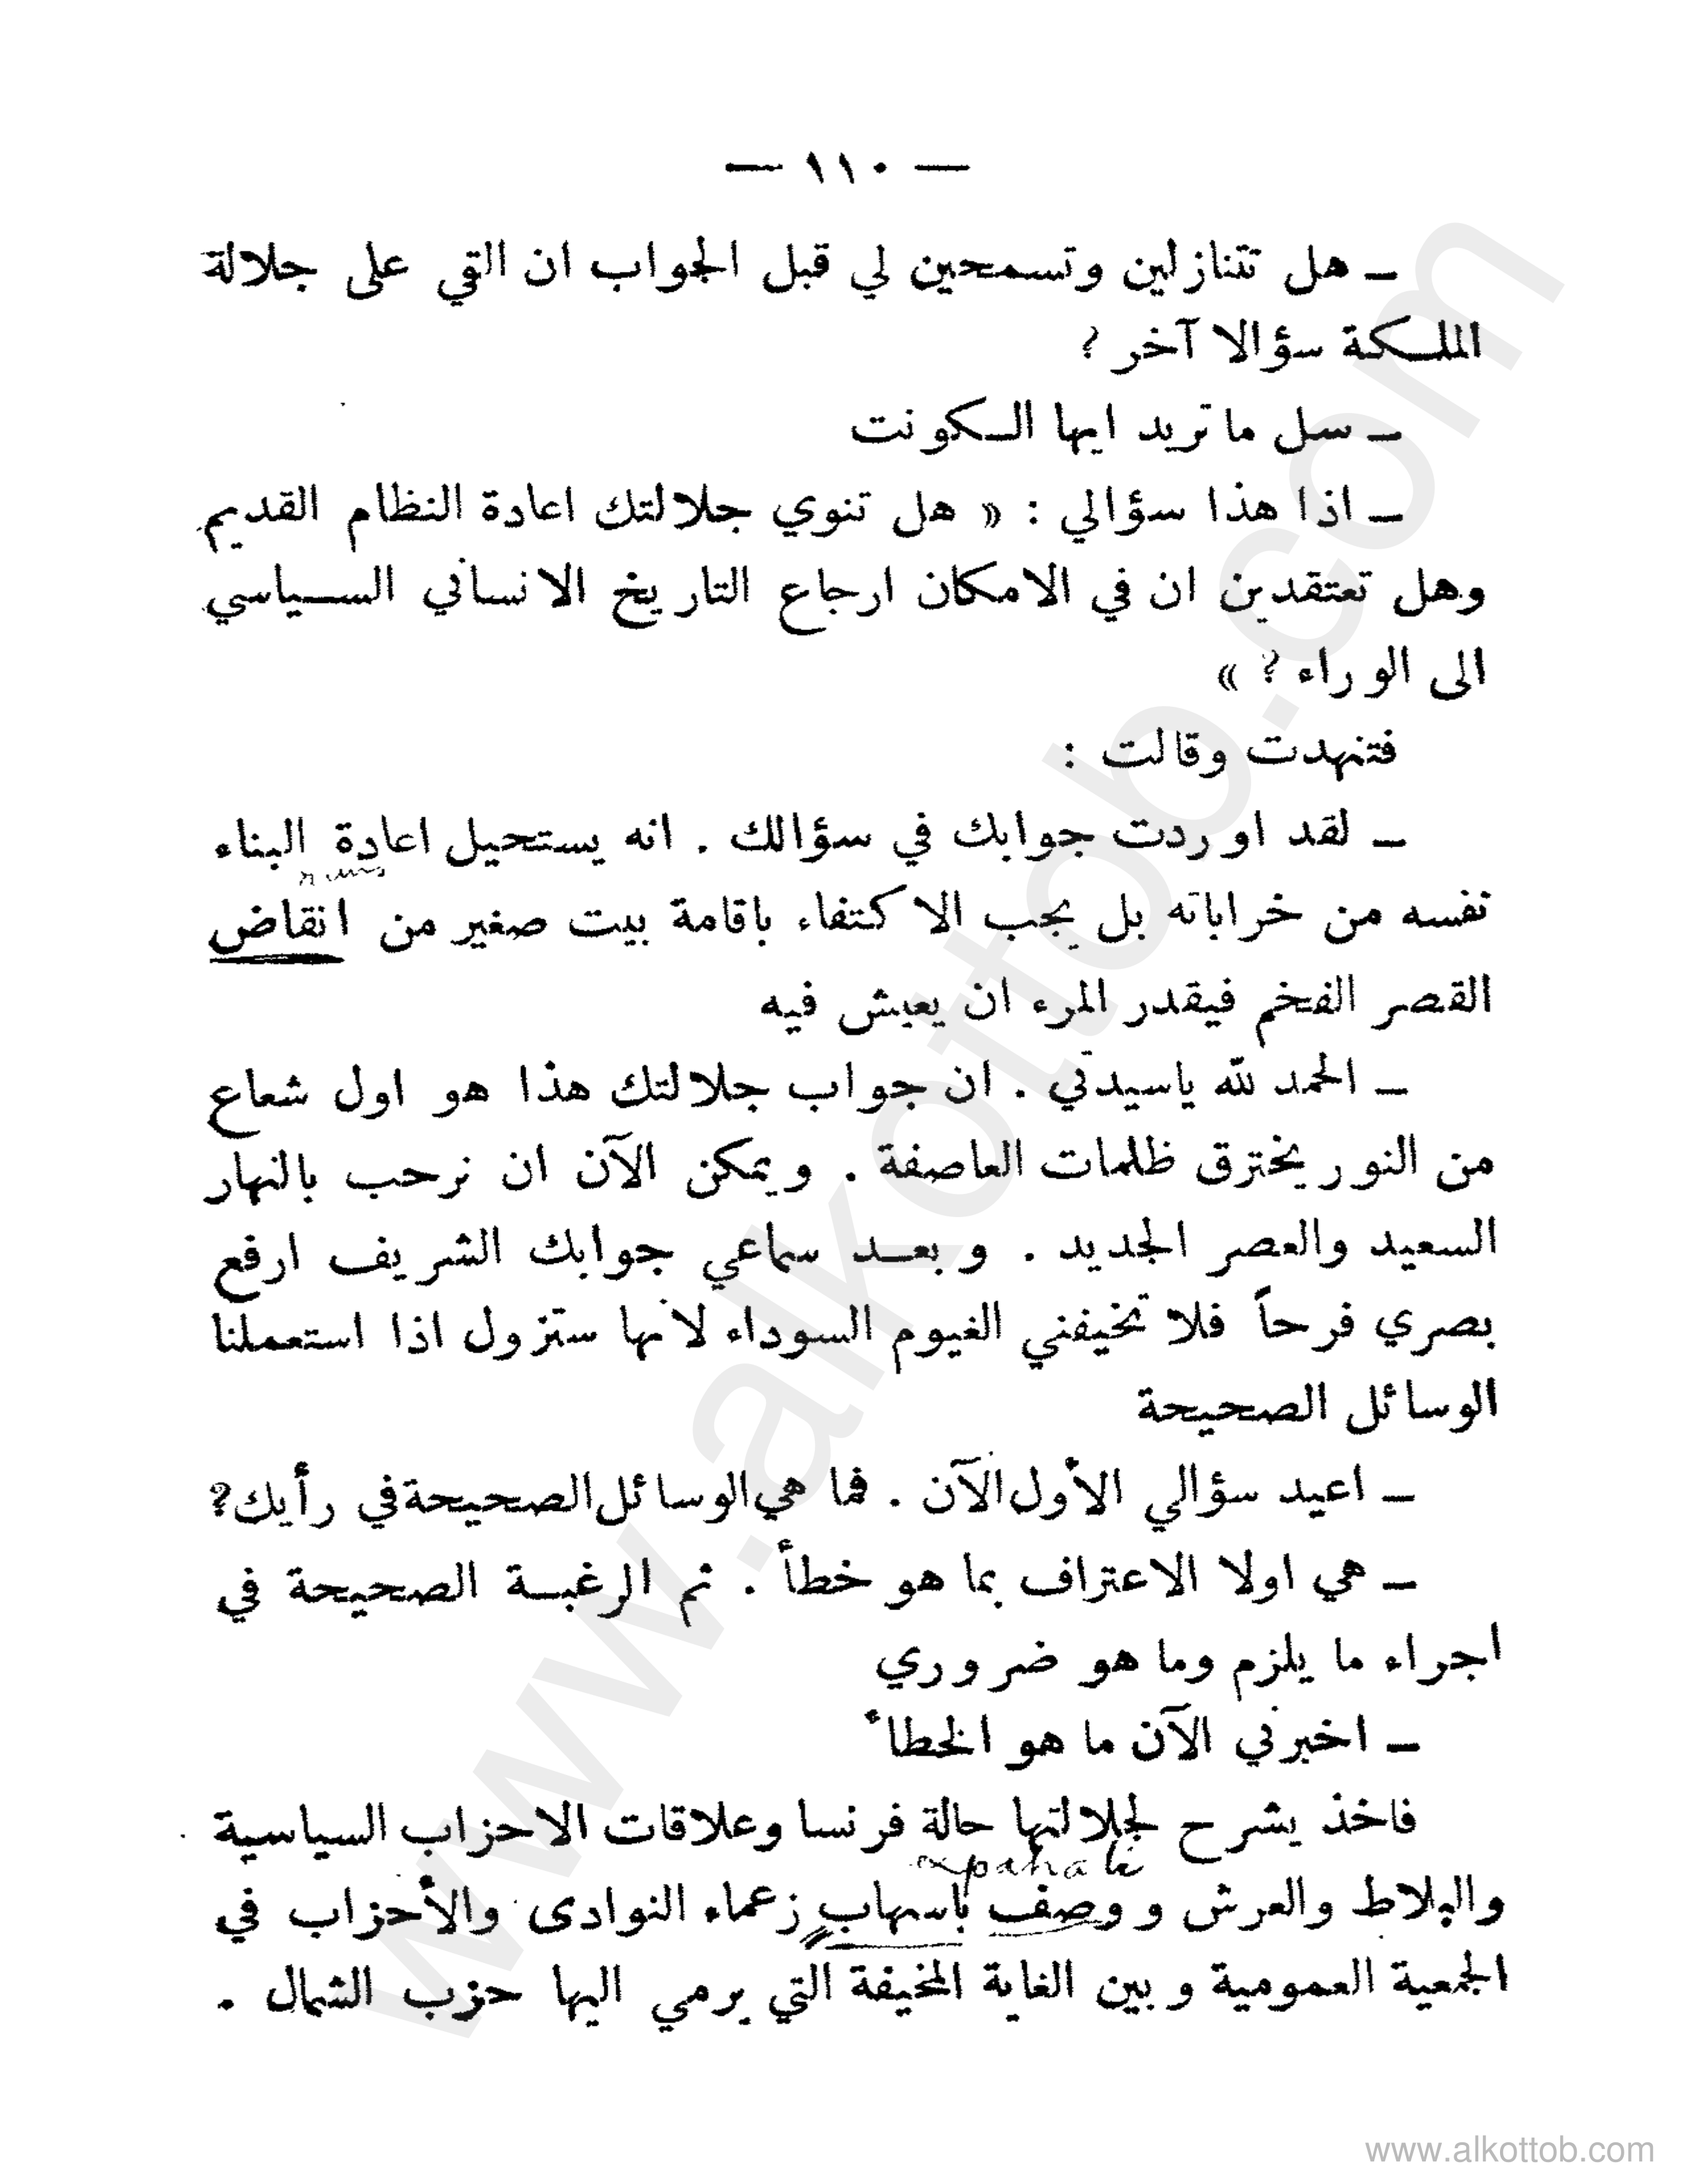 — ١١٠ —
– هل تتنازلين وتسمحين لي قبل الجواب ان القي على جلالة
الملكة سؤالا آخر ؟
– سل ماتريد ايها الكونت
– اذا هذا سؤالي : « هل تنوي جلالتك اعادة النظام القديم
وهل تعتقدين ان في الامكان ارجاع التاريخ الانساني السياسي
الى الوراء ؟ »
فتنهدت وقالت :
– لقد اوردت جوابك في سؤالك . انه يستحيل اعادة البناء
نفسه من خراباته بل يجب الاكتفاء باقامة بيت صغير من انقاض
القصر الفخم فيقدر المرء ان يعيش فيه
– الحمد لله ياسيدتي . ان جواب جلالتك هذا هو اول شعاع
من النور يخترق ظلمات العاصفة . ويمكن الآن ان نرحب بالنهار
السعيد والعصر الجديد . وبعد سماعي جوابك الشريف ارفع
بصري فرحاً فلا تخيفني الغيوم السوداء لانها ستزول اذا استعملنا
الوسائل الصحيحة
– اعيد سؤالي الأول الآن . فما هي الوسائل الصحيحة في رأيك؟
– هي اولا الاعتراف بما هو خطأ . ثم الرغبة الصحيحة في
اجراء ما يلزم وما هو ضروري
– اخبرني الآن ما هو الخطأ
فاخذ يشرح لجلالتها حالة فرنسا وعلاقات الاحزاب السياسية
والبلاط والعرش ووصف باسهاب زعماء النوادى والأحزاب في
الجمعية العمومية وبين الغاية المخيفة التي يرمي اليها حزب الشمال .
www.alkottob.com
www.alkottob.com